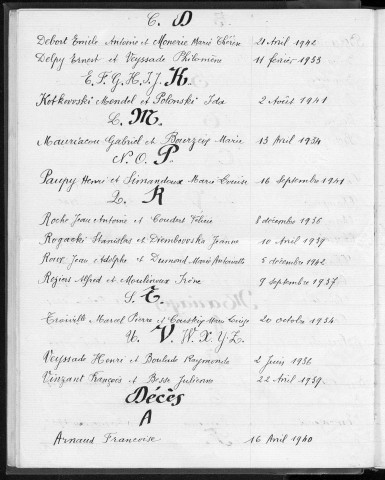 C. D
Debort Emile Antoine et Monerie Marie Thérèse 21 Avril 1942
Delpy Ernest et Veyssade Philomène 11 février 1933
E. F. G. H. I. J. K.
Kotkowski Mendel et Polonski Ida 2 Août 1941
L. M.
Mauriacou Gabriel et Bourzeix Marie 13 Avril 1934
N. O. P.
Paupy Henri et Simandoux Marie Louise 16 Septembre 1941
Q. R
Roche Jean Antoine et Coudert 8 décembre 1936
Rogacki Stanislas et Dziembowska Jeanne 10 Avril 1939
Roux Jean Adolphe et Durmond Marie Antoinette 5 décembre 1942
Régius Alfred et Moulinoux Irène 9 septembre 1937
S. T.
Marcel Pierre et Marie Louise 20 octobre 1934
U. V. W. X. Y. Z.
Veyssade Henri et Boulade Raymonde 2 Juin 1936
Vinzant François et Besse Julienne 22 Avril 1939
Décès
A
Arnaud Françoise 16 Avril 1940